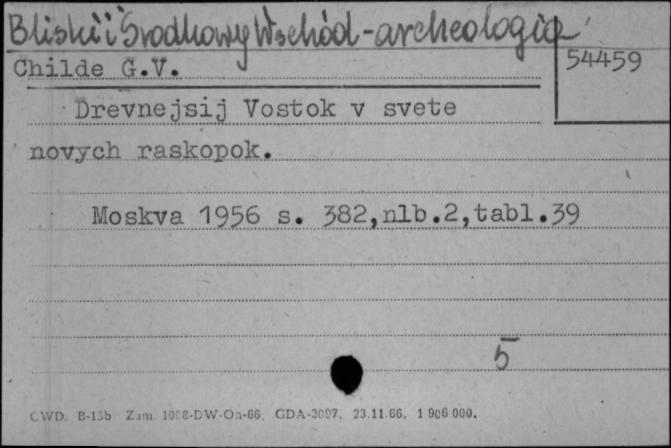 Bliski i Środkowy Wschód - archeologia
Childe G.V.
54459
Drevnejsij Vostok v svete
novych raskopok.
Moskva 1956 s. 382,nlb.2,tabl.39
5
CWD. B-15b Zam. 1008-DW-On-66. GDA-3097. 23.11.66. 1 906 000.